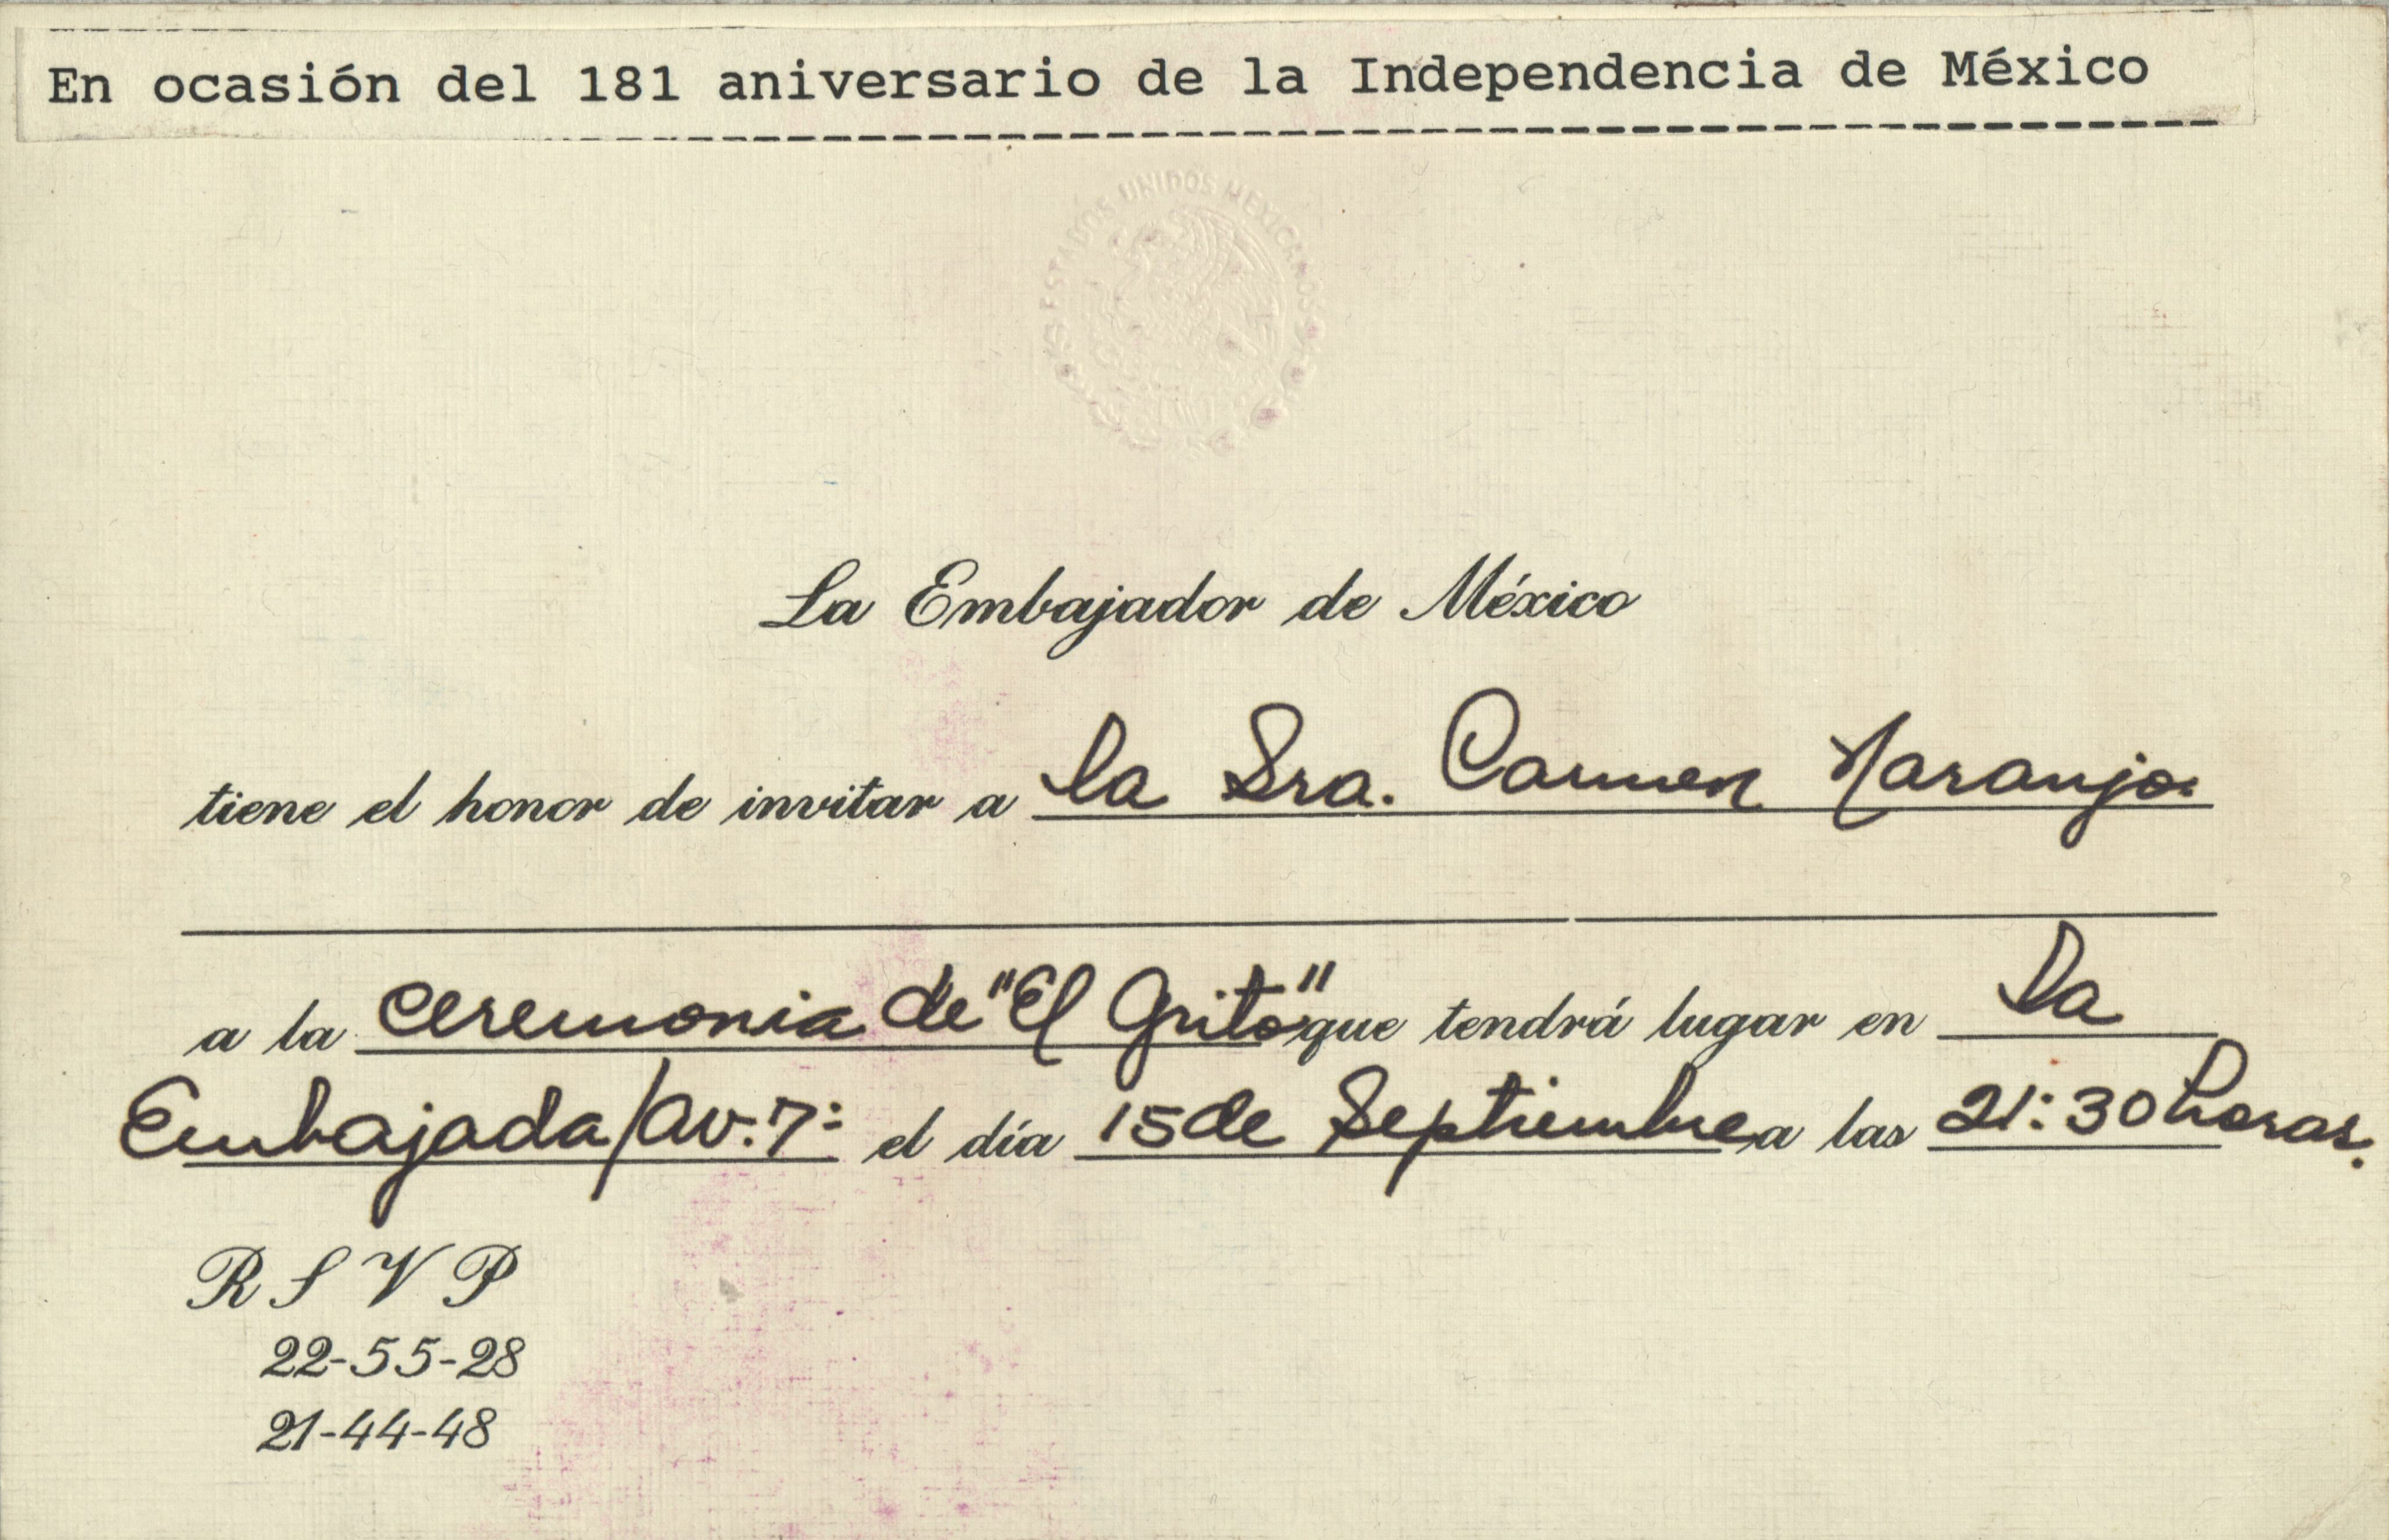 En ocasión del 181 aniversario de la Independencia de México
ESTADOS UNIDOS MEXICANOS
La Embajador de México
tiene el honor de invitar a la Sra. Carmen Naranjo.
a la ceremonia de "El Grito" que tendrá lugar en la
Embajada/Av. 7: el día 15 de Septiembre a las 21:30 horas.
R S V P
22-55-28
21-44-48